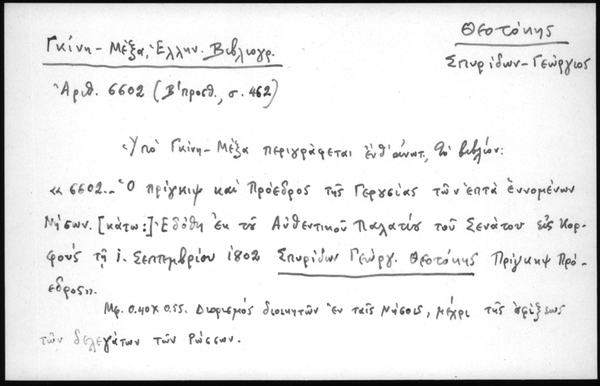 Θεοτόκης
Σπυρίδων-Γεώργιος
Γκίνη-Μέξα, Ἑλλην. Βιβλιογρ.
Ἀριθ. 6602 (Β' προσθ., σ. 462)
Ὑπὸ Γκίνη-Μέξα περιγράφεται τὸ βιβλίον:
«6602.- Ὁ πρίγκιψ καὶ Πρόεδρος τῆς Γερουσίας τῶν ἑπτὰ ἑννομένων
Νήσων. [κάτω:] Ἐδόθη ἐκ τοῦ Αὐθεντικοῦ Παλατίου τοῦ Σενάτου εἰς Κορ-
φοὺς τῇ 1. Σεπτεμβρίου 1802 Σπυρίδων Γεώργ. Θεοτόκης Πρίγκηψ Πρό-
εδρος».
Μφ. 0.40Χ0.55. Διορισμὸς διοικητῶν ἐν ταῖς Νήσοις, μέχρι τῆς ἀφίξεως
τῶν δελεγάτων τῶν Ρώσσων.